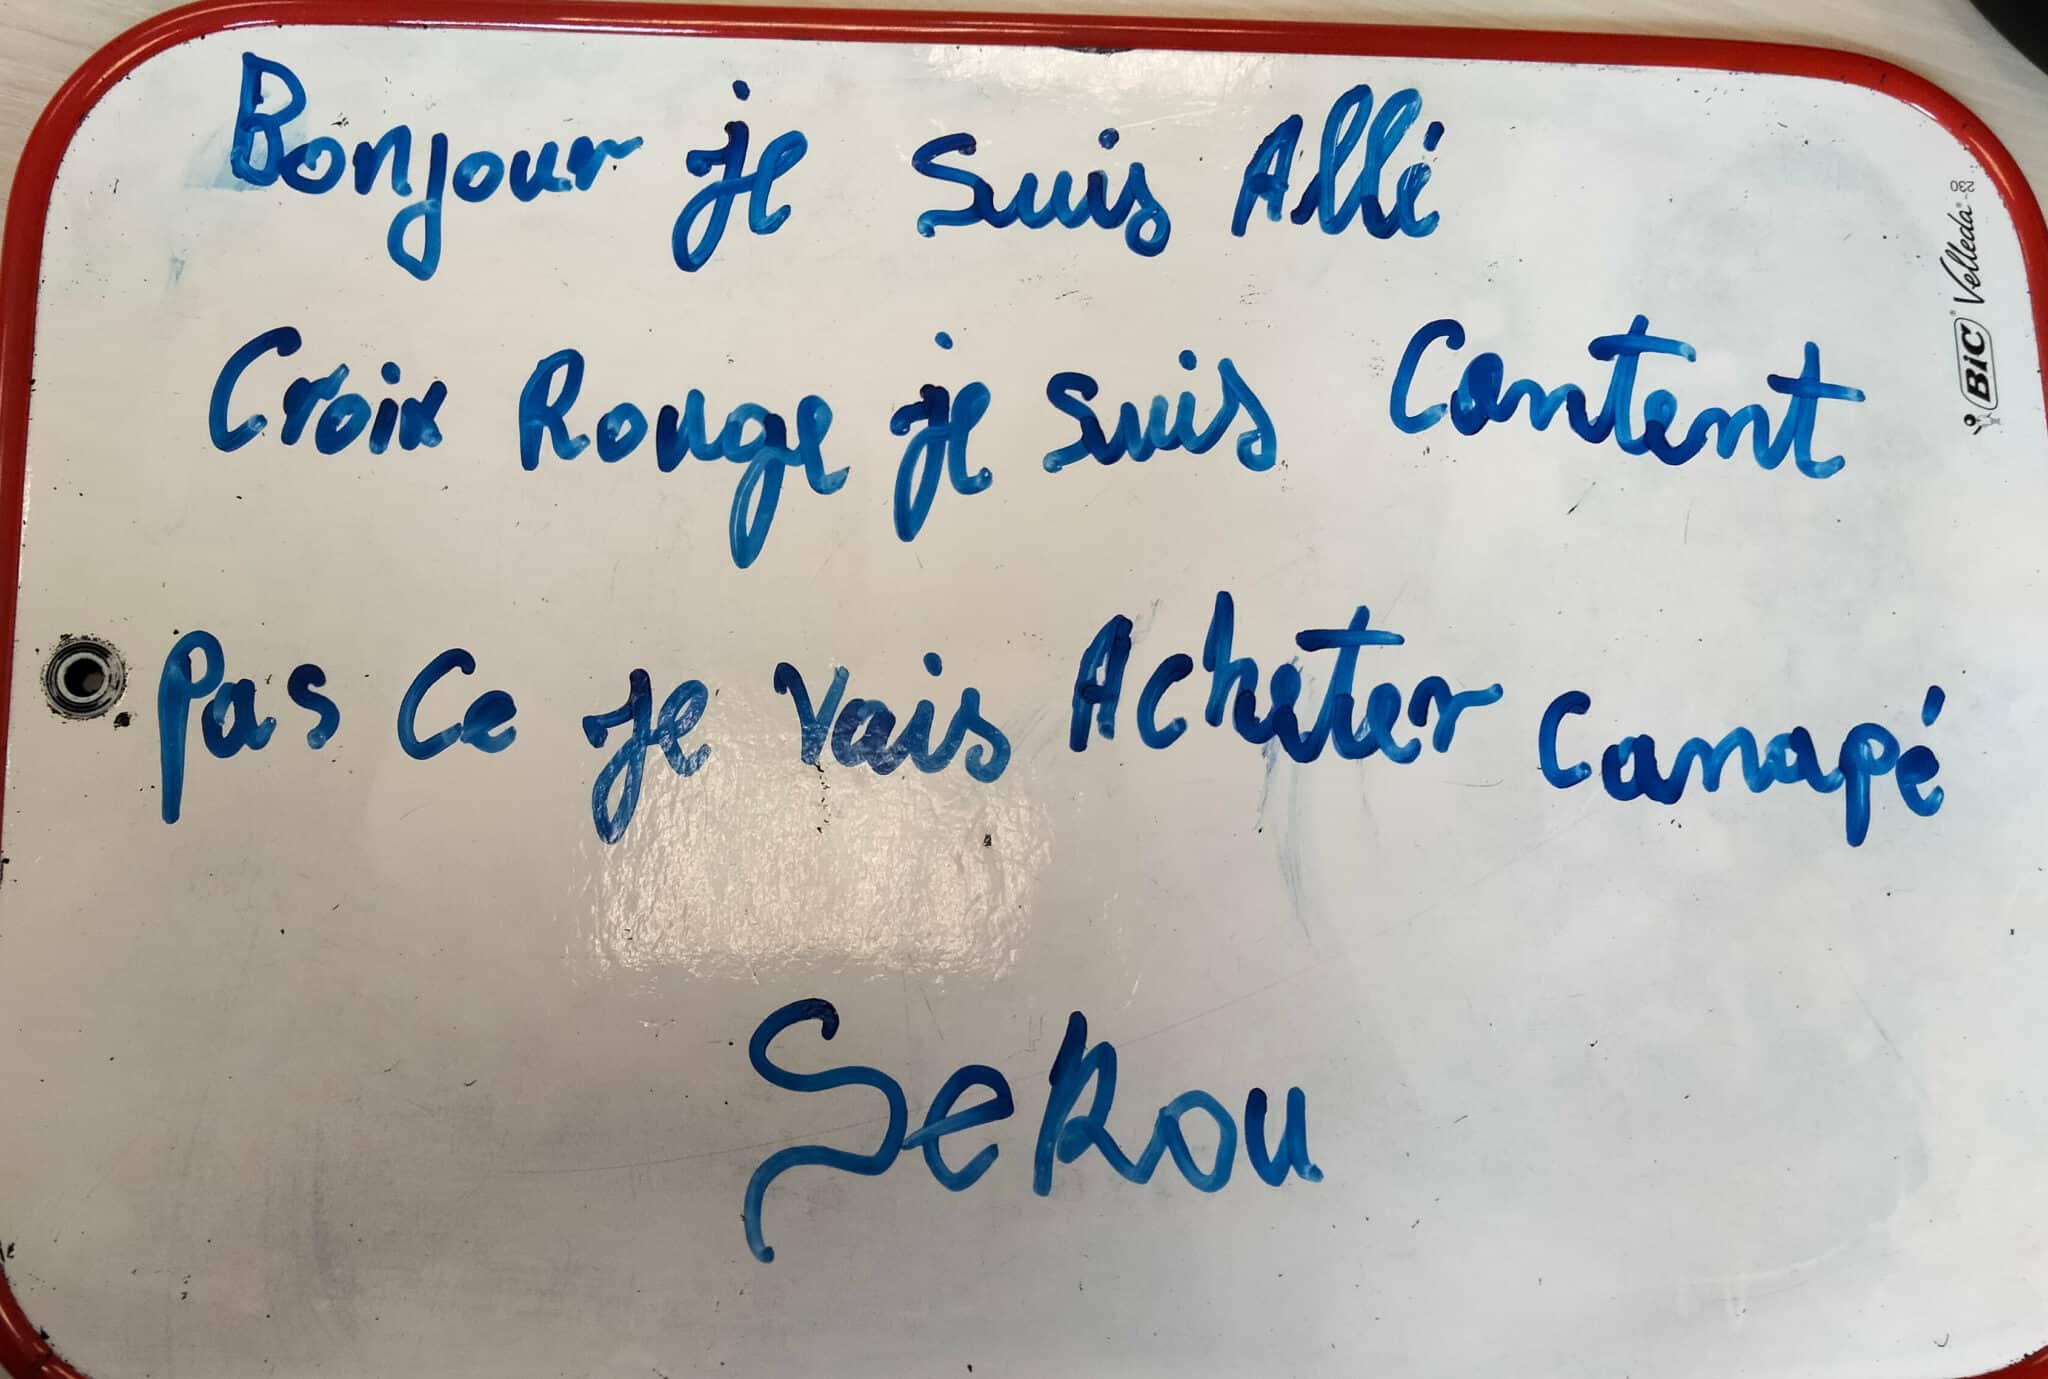 Bonjour je Suis Allé
Croix Rouge je suis Content
Pas Ce je Vais Acheter Canapé
SeKou
BiC Velleda